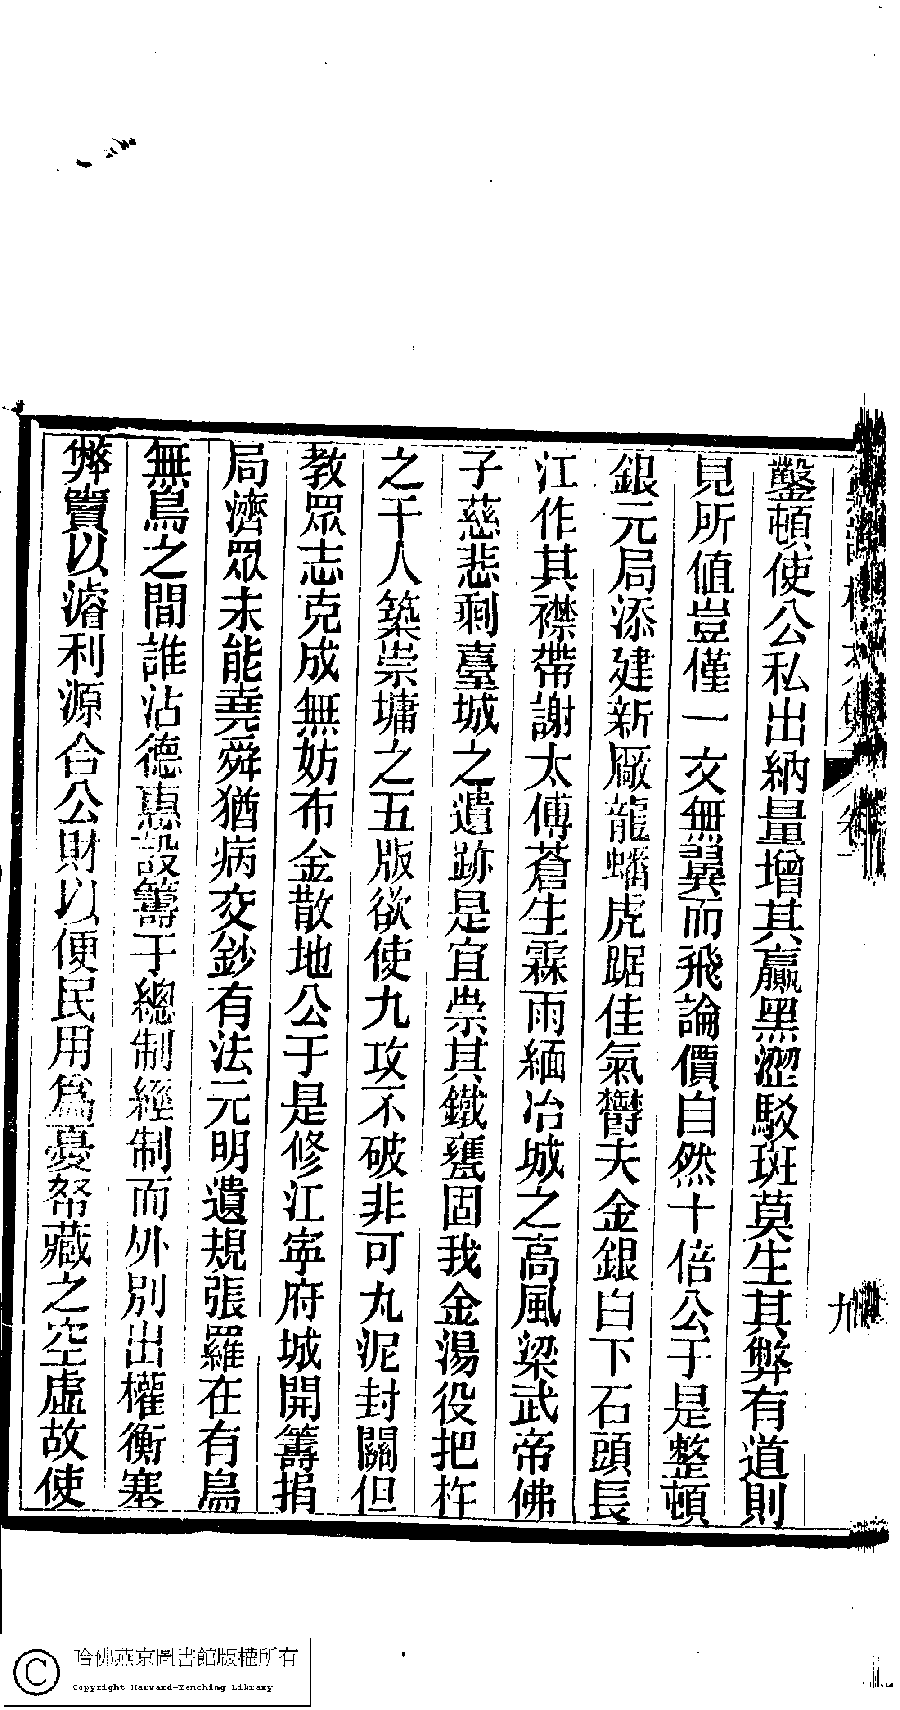 鑿頓使公私出納量增其贏黑澀駁斑莫生其弊有道則
見所值豈僅一文無翼而飛論價自然十倍公于是整頓
銀元局添建新廠龍蟠虎踞佳氣鬱夫金銀白下石頭長
江作其襟帶謝太傅蒼生霖雨緬冶城之高風梁武帝佛
子慈悲剩臺城之遺跡是宜崇其鐵甕固我金湯役把杵
之千人築崇墉之五版欲使九攻不破非可丸泥封關但
教眾志克成無妨布金散地公于是修江寧府城開籌捐
局濟眾未能堯舜猶病交鈔有法元明遺規張羅在有鳥
無鳥之間誰沾德惠設籌于總制經制而外別出權衡塞
弊竇以濬利源合公財以便民用為憂帑藏之空虛故使
卷
九
哈佛燕京圖書館版權所有
Copyright Harvard-Yenching Library